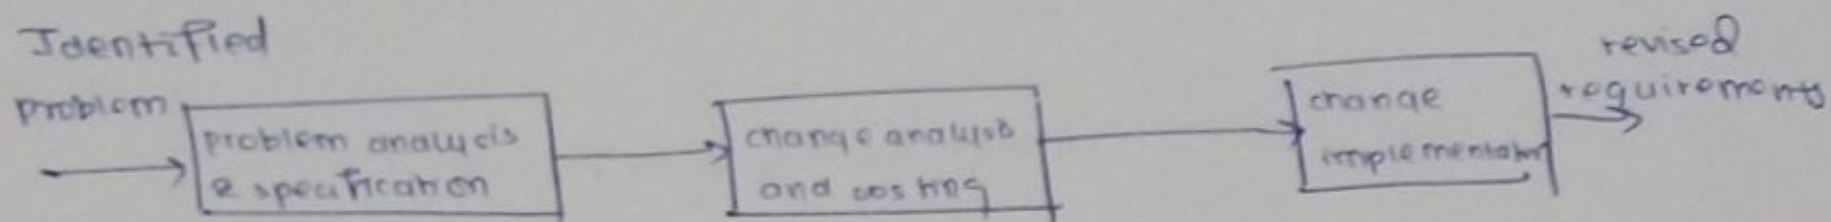 Identified
problem
problem analysis
& specification
change analysis
and costing
change
implementation
revised
requirements